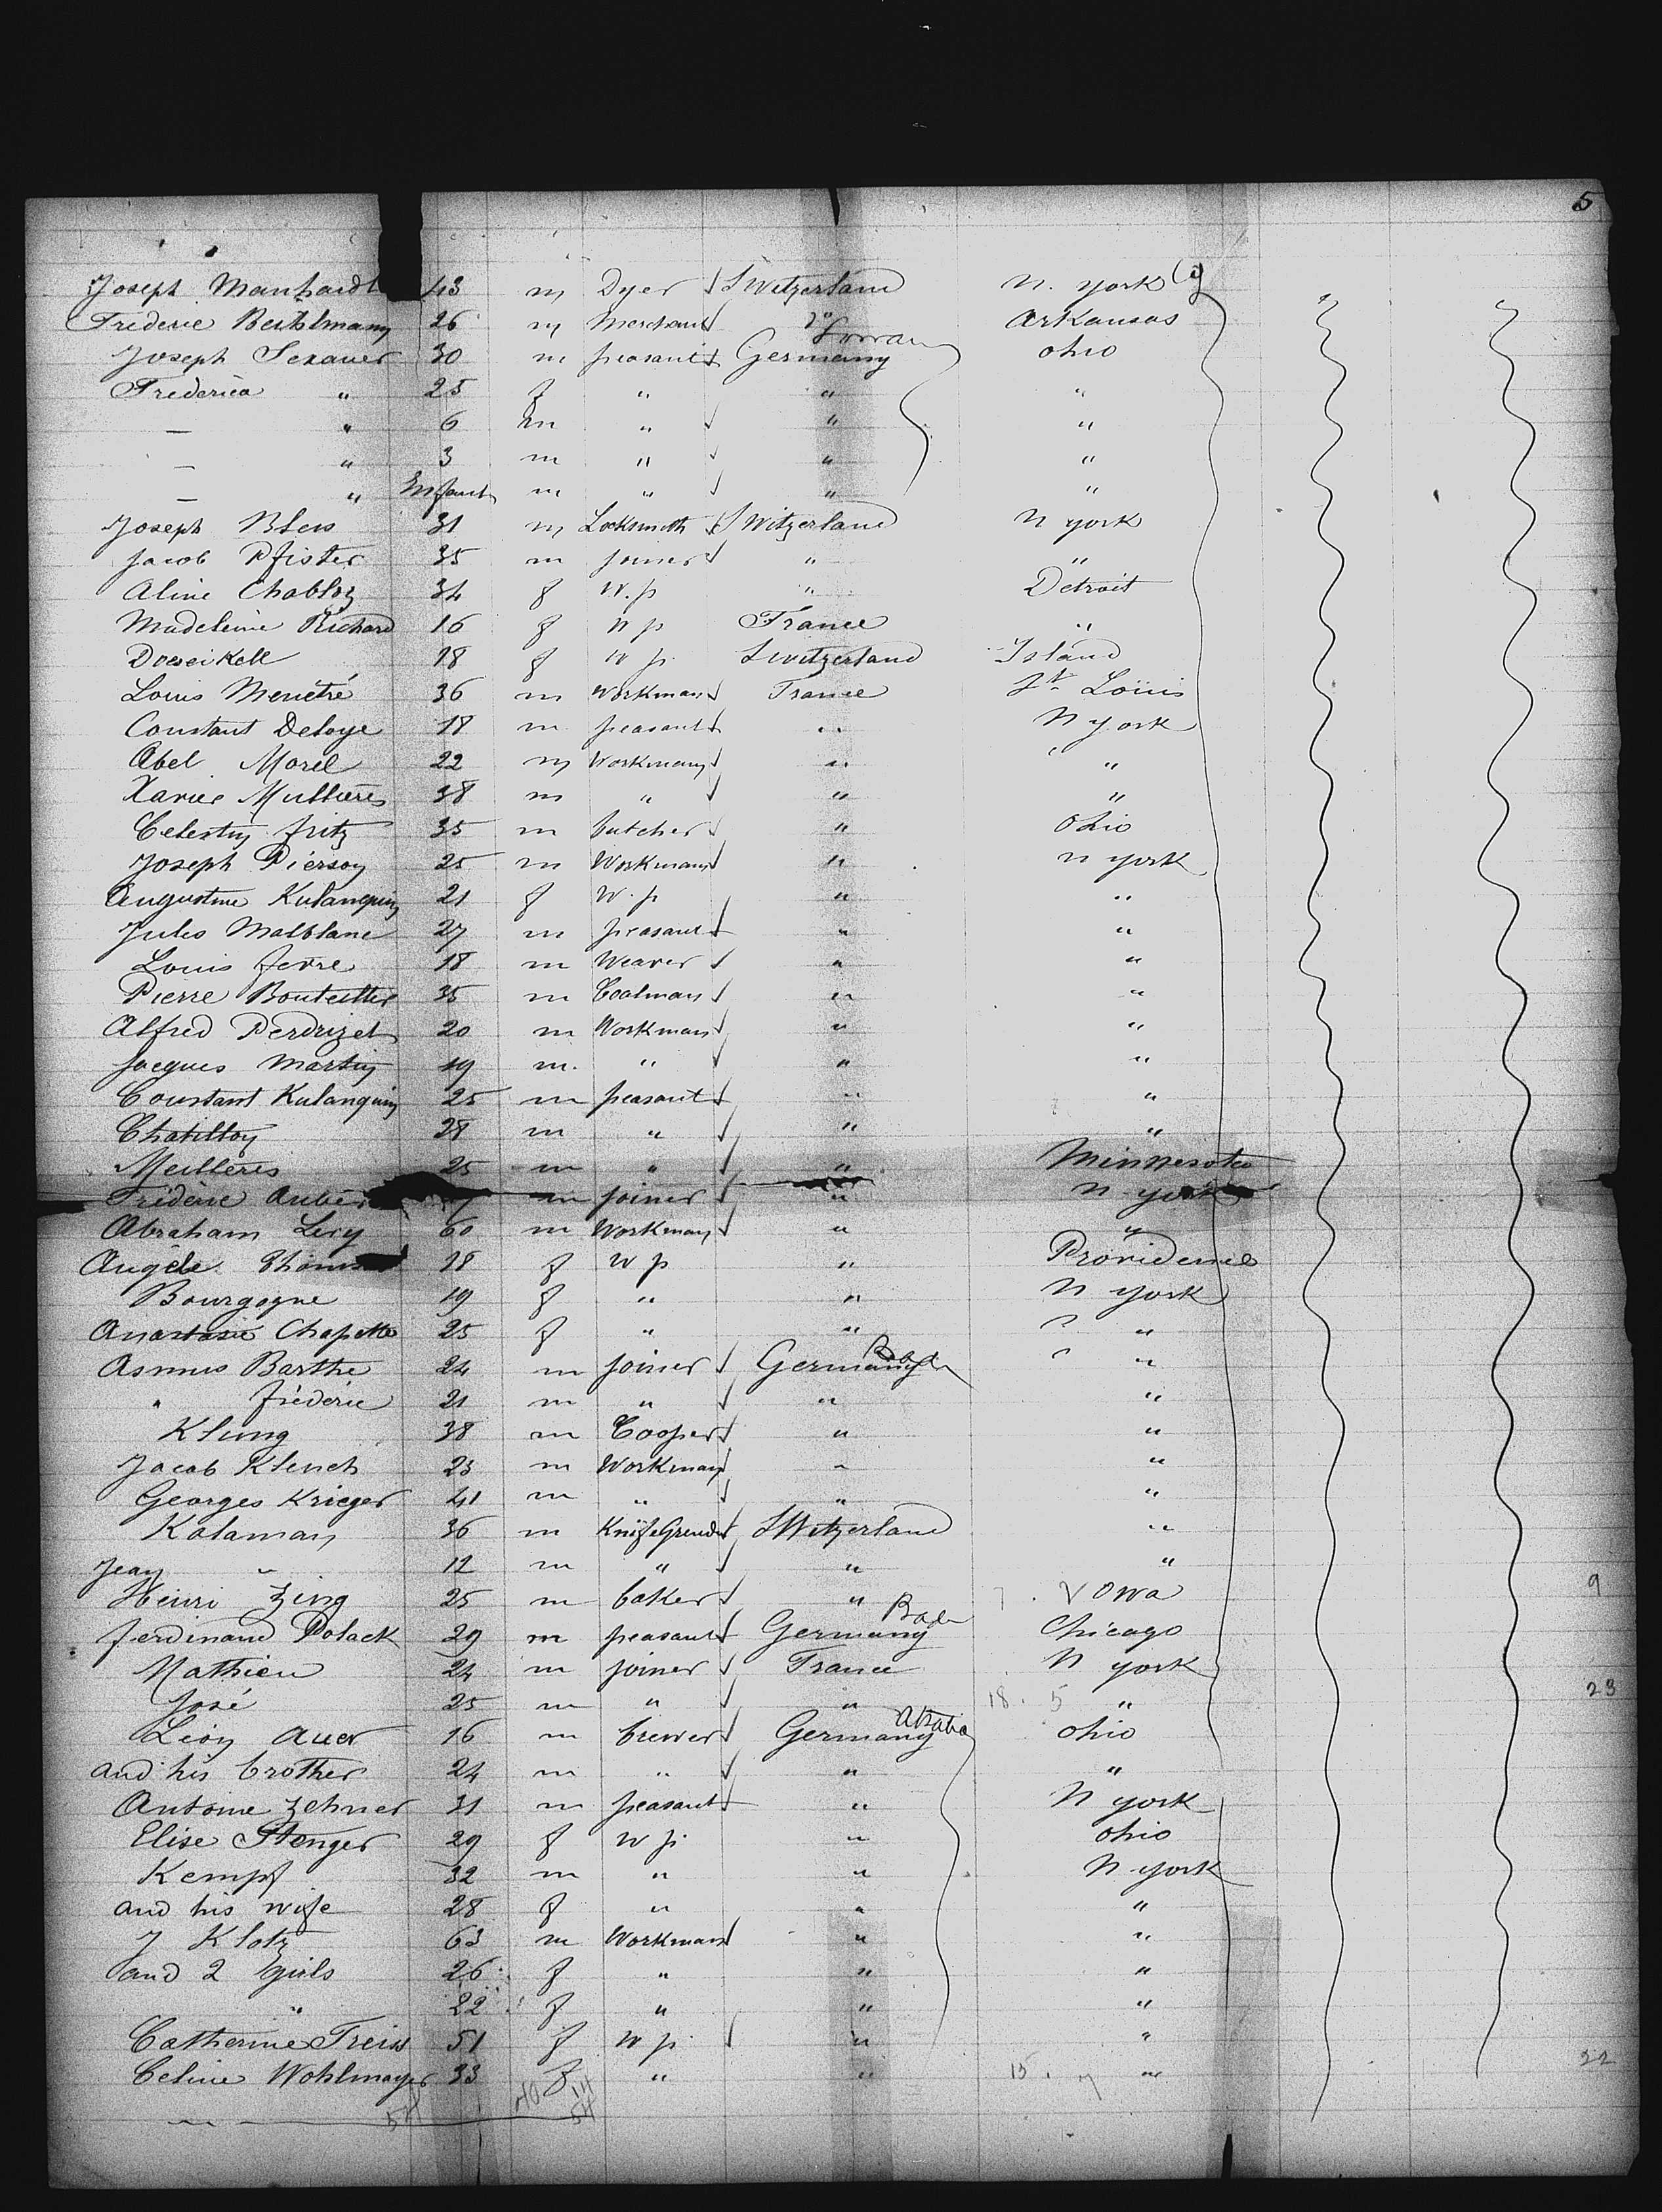 5
Joseph Manhardt 43 m Dyer Switzerland N. york
Frederic Berthlmann 26 m Merchant d° Arkansas
Joseph Sexauer 30 m peasant Germany ohio
Frederica " 25 f " " "
— " 6 m " " "
— " 3 m " " "
— " Infant m " " "
Joseph Bleis 31 m Locksmith Switzerland N york
Jacob Pfister 35 m joiner " "
Aline Chabloz 34 f W.p " Detroit
Madeleine Richard 16 f W p France "
Doeseikell 18 f W p Switzerland Island
Louis Menétré 36 m Workman France St Loüis
Constant Deloye 18 m peasant " N york
Abel Morel 22 m Workman " "
Xavier Mullieres 38 m " " "
Celestin fritz 35 m butcher " Ohio
Joseph Piérson 25 m Workman " N york
Augustine Kulanquin 21 f W.p " "
Jules Malblanc 27 m peasant " "
Louis fevre 18 m Weaver " "
Pierre Bouteiller 35 m Coalman " "
Alfred Perdrizet 20 m Workman " "
Jacques Martin 19 m. " " "
Constant Kulanquin 25 m peasant " "
Chatillon 28 m " " "
Meilleres 25 m " " Minnesota
Frédéric Auber 7 m joiner " N york
Abraham Levy 60 m Workman " "
Angéle 18 f W p " Providence
Bourgogne 19 f " " N york
Anastasie Chapotte 25 f " " "
Asmus Barthe 24 m joiner Germany Baden "
" fréderic 21 m " " "
Klung 38 m Cooper " "
Jacob Klench 23 m Workman " "
Georges Krieger 41 m " " "
Kalaman 36 m Knife Grinder Switzerland "
Jean " 12 m " " "
Henri Zing 25 m baker " Yowa 9
ferdinand Polack 29 m peasant Germany Baden Chicago
Mathieu 24 m joiner France N york
José 25 m " " 18. 5 " 23
Léon Auer 16 m brewer Germany ohio
and his brother 24 m " " "
Antoine Zehner 31 m peasant " N york
Elise Stenger 29 f W p " ohio
Kempf 32 m " " N york
and his wife 28 f " " "
J Klotz 63 m Workman " "
and 2 girls 26 f " " "
" 22 f " " "
Catherine Treiss 51 f W p " "
Celine Wohlmayer 33 f " " 15. 7 " 22
54 40 14
54